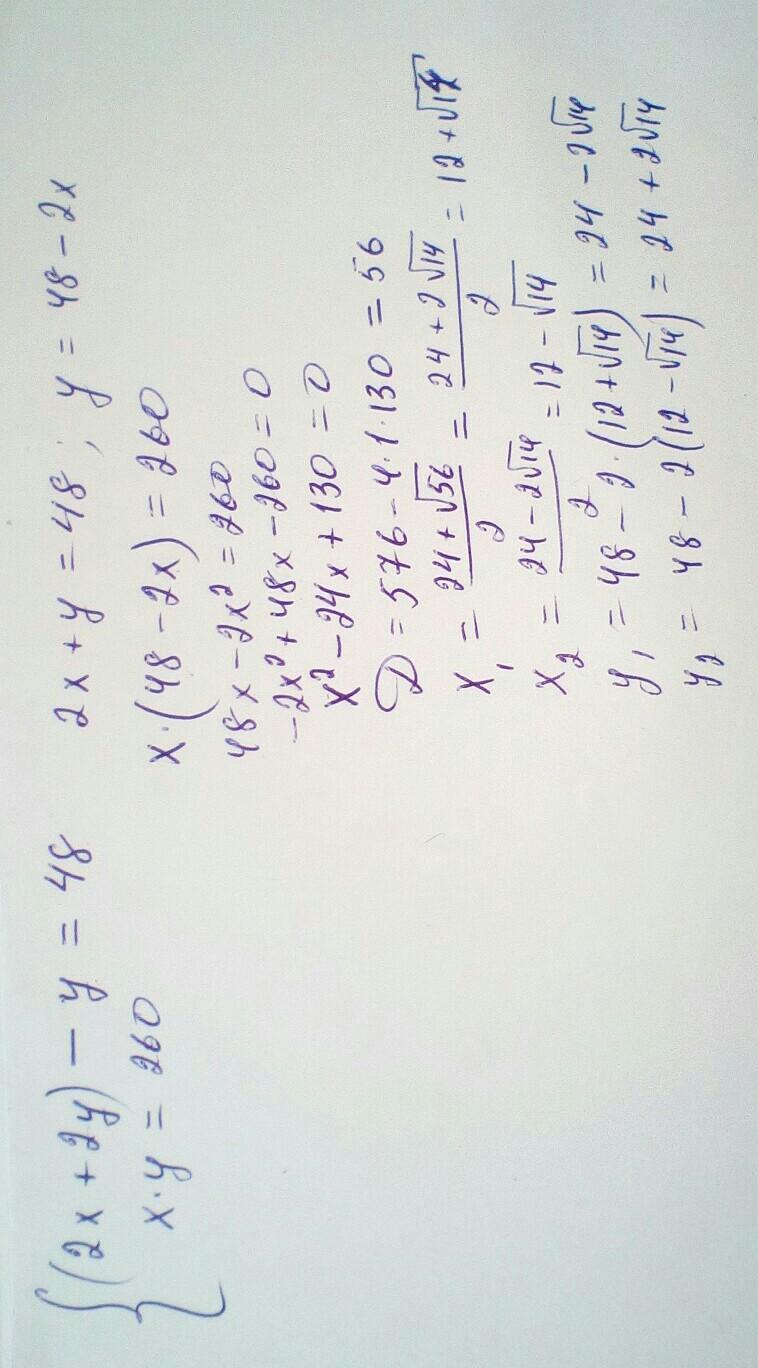 {(2x + 2y) − y = 48
x·y = 260
2x + y = 48 ; y = 48 − 2x
x·(48 − 2x) = 260
48x − 2x² = 260
−2x² + 48x − 260 = 0
x² − 24x + 130 = 0
D = 576 − 4·1·130 = 56
x₁ = (24 + √56)/2 = (24 + 2√14)/2 = 12 + √14
x₂ = (24 − 2√14)/2 = 12 − √14
y₁ = 48 − 2·(12 + √14) = 24 − 2√14
y₂ = 48 − 2(12 − √14) = 24 + 2√14